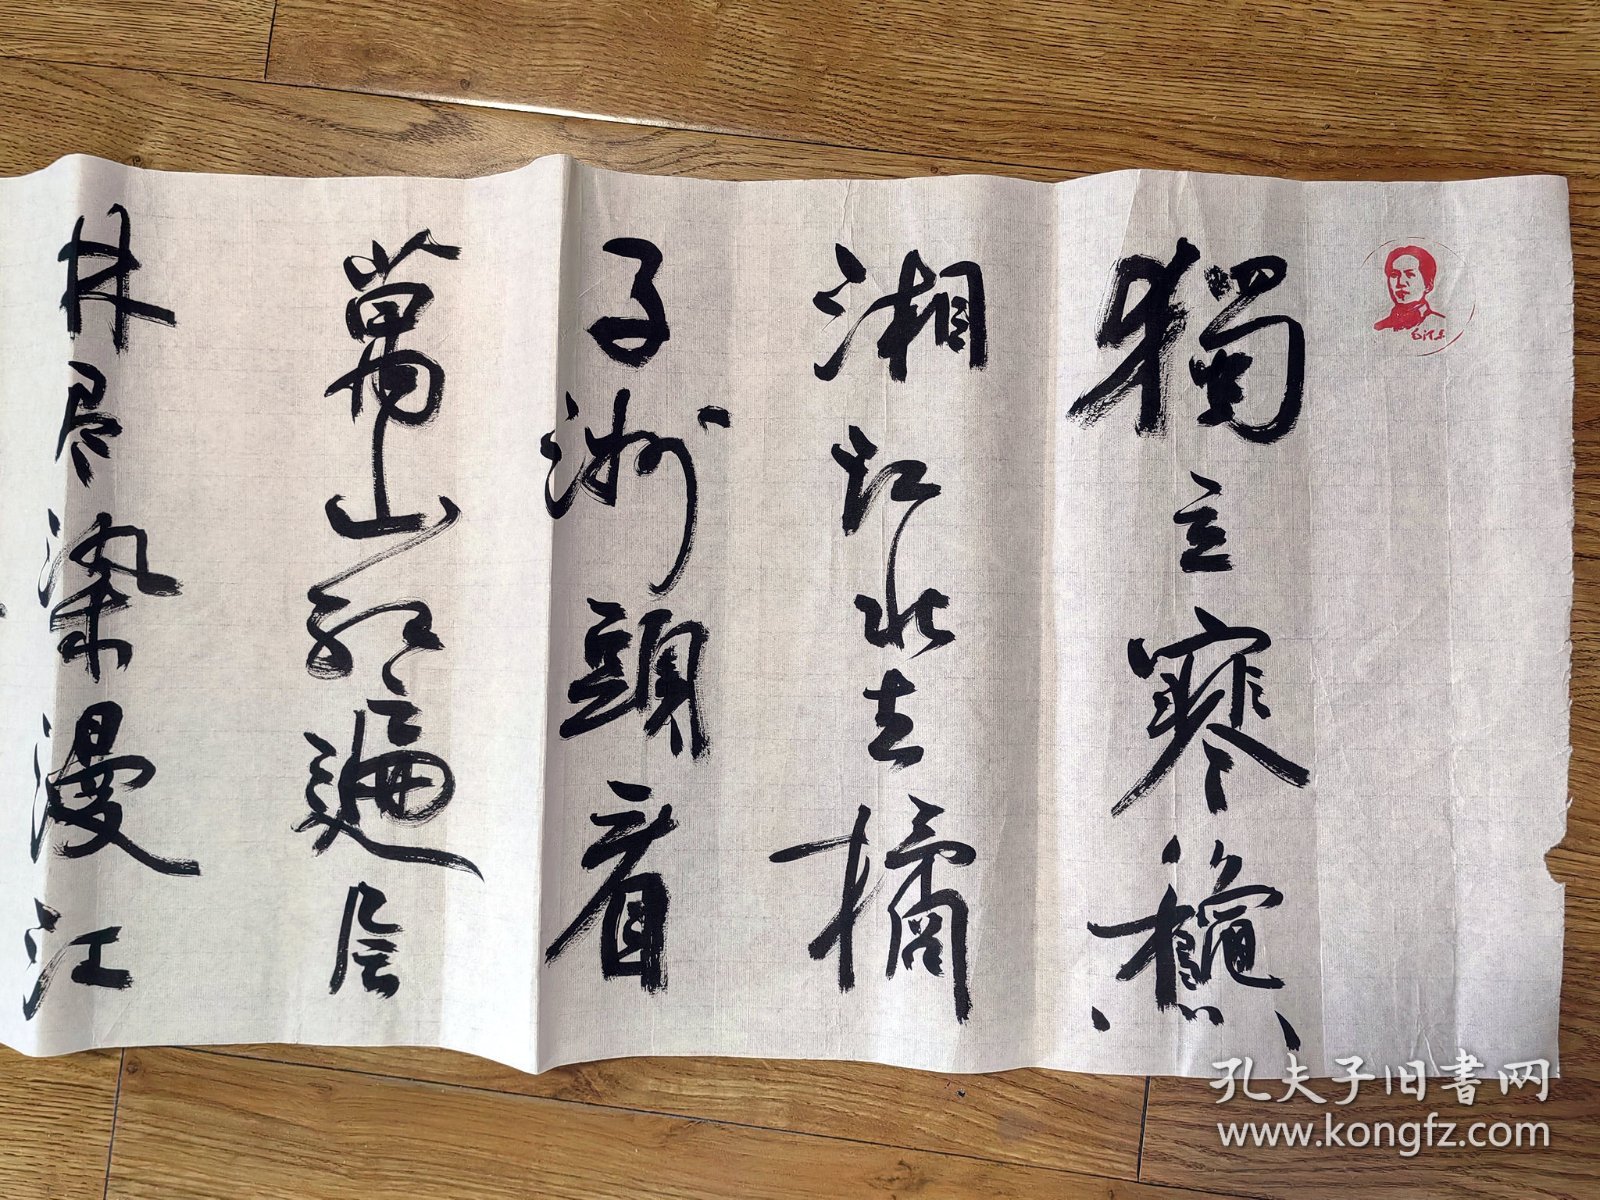 獨立寒穐
湘江北去橘
子洲頭看
萬山红遍层
林尽染漫江
孔夫子旧書网
www.kongfz.com